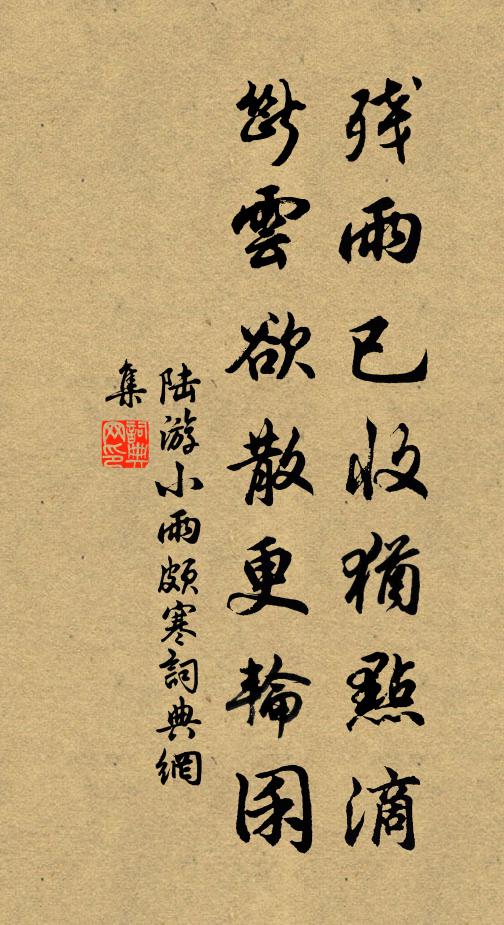 残雨已收猶點滴
斷雲欲散更輪囷
陆游小雨頗寒詞典網
集
詞典
网印